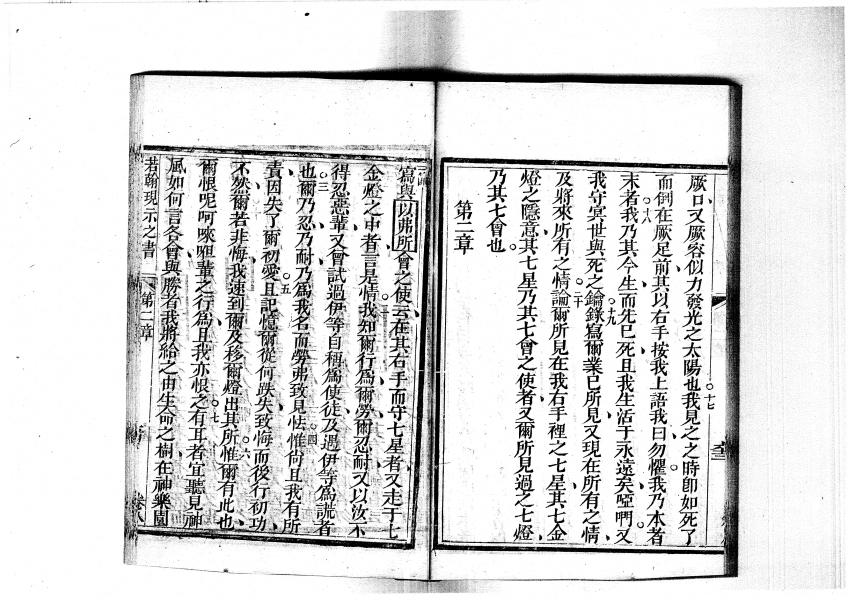 厥口又厥容似力發光之太陽也我見之之時卽如死了
十七
而倒在厥足前其以右手按我上語我曰勿懼我乃本者
十八
末者我乃其今生而先已死且我生活于永遠矣啞吀又
我守冥世與死之鑰錄寫爾業已所見又現在所有之情
十九
及將來所有之情論爾所見在我右手裡之七星其七金
二十
燈之隱意其七星乃其七會之使者又爾所見過之七燈
乃其七會也
第二章
寫與以弗所會之使云在其右手而守七星者又走于七
金燈之中者言是情我知爾行爲爾勞爾忍耐又以汝不
二
得忍惡輩又曾試過伊等自稱爲使徒及遇伊等爲謊者
三
也爾乃忍乃耐乃爲我名而勞弗致見怯惟尙且我有所
四
責因失了爾初愛且記憶爾從何跌失致悔而後行初功
五
不然爾若非悔我速到爾及移爾燈出其所惟爾有此也
六
爾恨呢呵唻咀輩之行爲且我亦恨之有耳者宜聽見神
七
風如何言各會與勝者我將給之由生命之樹在神樂園
若翰現示之書
第二章
卷八